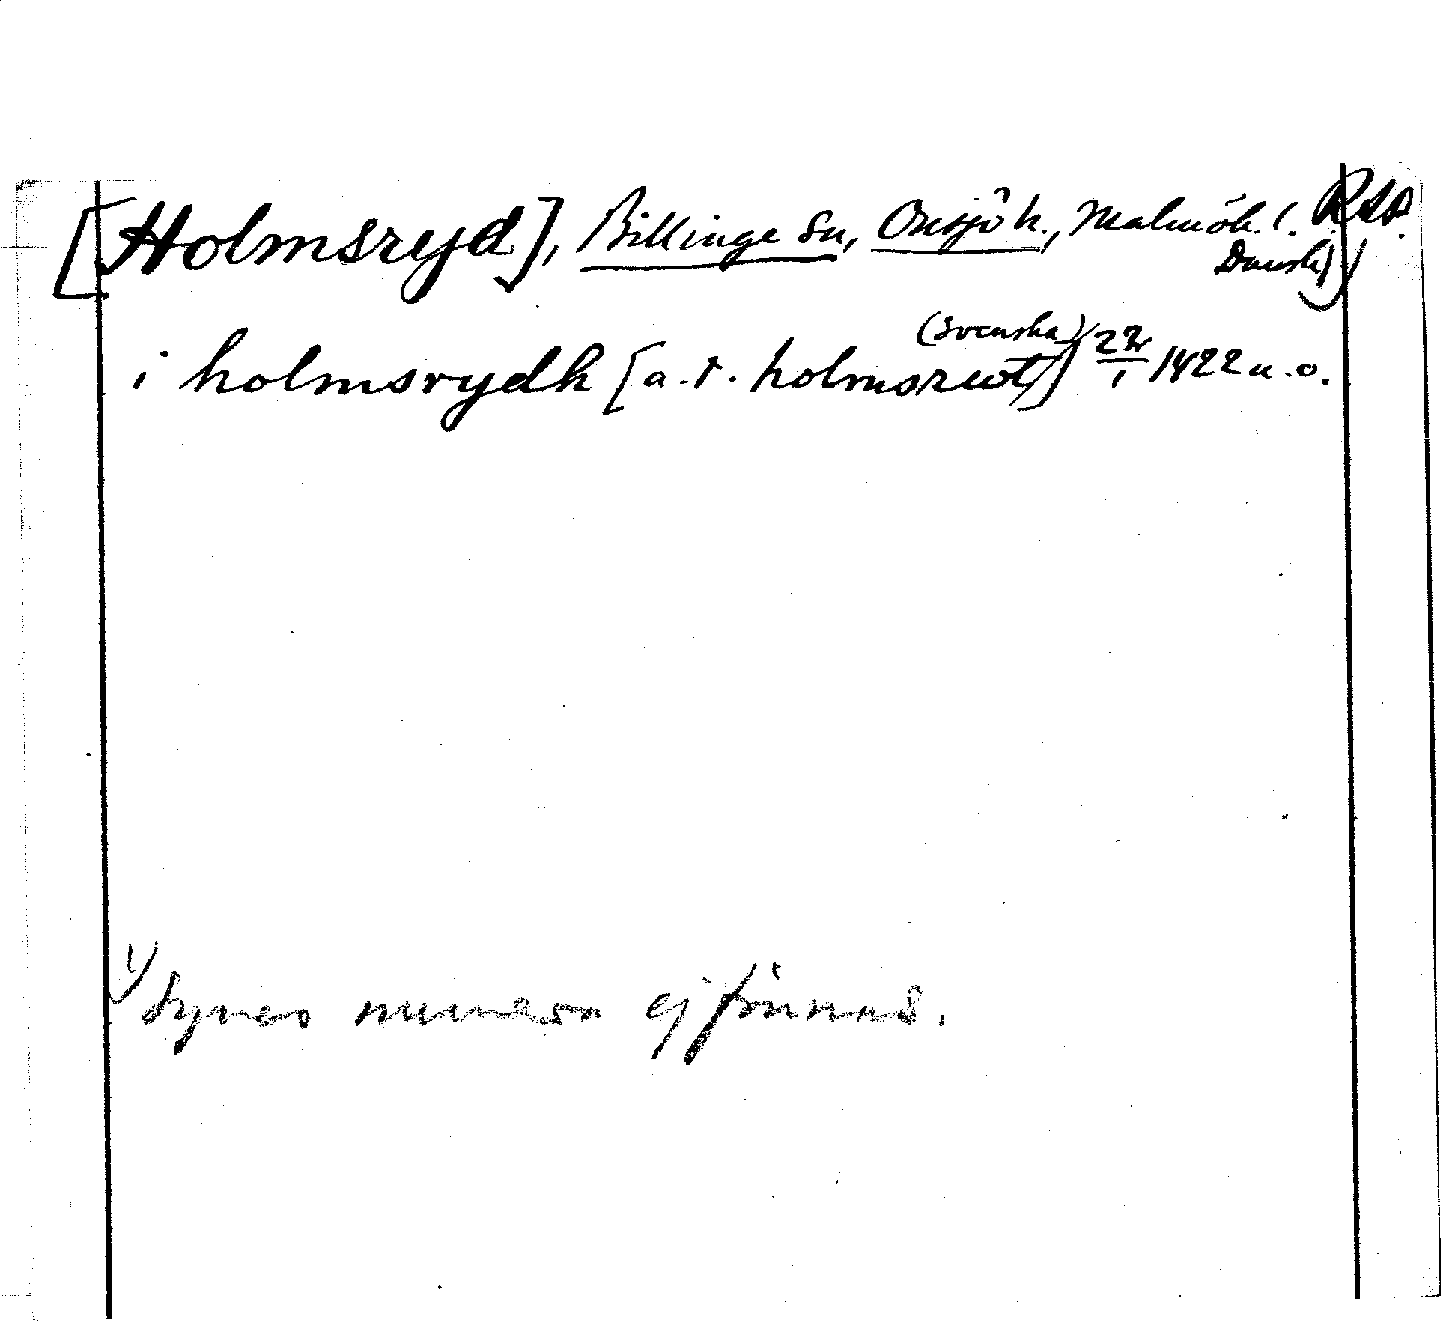 [Holmsryd], Billinge sn, Onsjö h., Malmöh. l. RAP.
Dansk)
(Svenska)
i holmsrydh [a.t. holmsrwt] 22/1 1422 u.o.
1) Synes numera ej finnas.